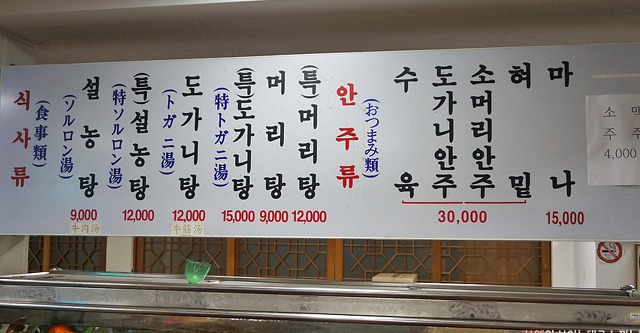 식사류
(食事類)
설농탕
(ソルロン湯)
9,000
牛肉汤
(특)설농탕
(特ソルロン湯)
12,000
도가니탕
(トガニ湯)
12,000
牛筋汤
(특)도가니탕
(特トガニ湯)
15,000
머리탕
9,000
(특)머리탕
12,000
안주류
(おつまみ類)
수육
도가니안주
소머리안주
혀밑
30,000
마나
15,000
소
주
4,000